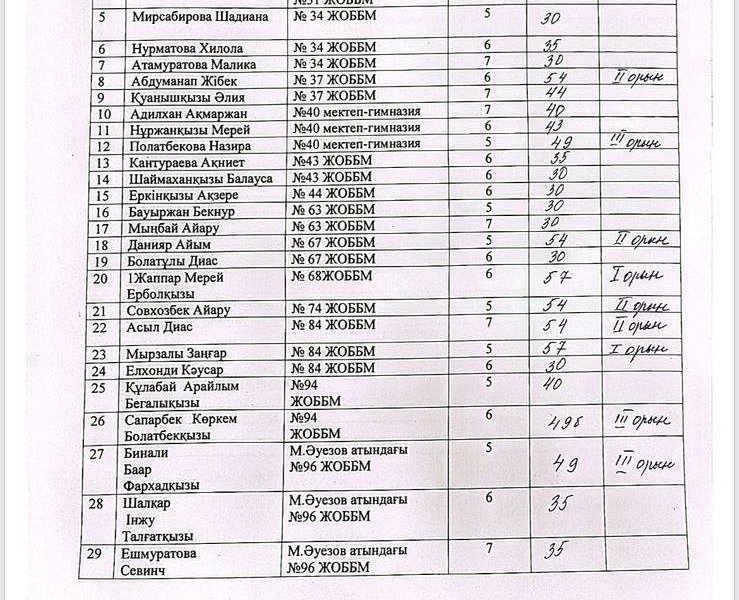 №31 ЖОББМ
5 Мирсабирова Шадиана № 34 ЖОББМ 5 30
6 Нурматова Хилола № 34 ЖОББМ 6 35
7 Атамуратова Малика № 34 ЖОББМ 7 30
8 Абдуманап Жібек № 37 ЖОББМ 6 54 II орын
9 Қуанышқызы Әлия № 37 ЖОББМ 7 44
10 Адилхан Ақмаржан №40 мектеп-гимназия 7 40
11 Нұржанқызы Мерей №40 мектеп-гимназия 6 43
12 Полатбекова Назира №40 мектеп-гимназия 5 49 III орын
13 Кантураева Ақниет №43 ЖОББМ 6 35
14 Шаймаханқызы Балауса №43 ЖОББМ 6 30
15 Еркінқызы Ақзере № 44 ЖОББМ 6 30
16 Бауыржан Бекнур № 63 ЖОББМ 5 30
17 Мыңбай Айару № 63 ЖОББМ 7 30
18 Данияр Айым № 67 ЖОББМ 5 54 II орын
19 Болатұлы Диас № 67 ЖОББМ 6 30
20 1Жаппар Мерей № 68ЖОББМ 6 57 I орын
Ерболқызы
21 Совхозбек Айару № 74 ЖОББМ 5 54 II орын
22 Асыл Диас № 84 ЖОББМ 7 54 II орын
23 Мырзалы Заңғар № 84 ЖОББМ 5 57 I орын
24 Елхонди Кәусар № 84 ЖОББМ 6 30
25 Құлабай Арайлым №94 5 40
Бегалықызы ЖОББМ
26 Сапарбек Көркем №94 6 49б III орын
Болатбекқызы ЖОББМ
27 Бинали М.Әуезов атындағы 5 49 III орын
Баар №96 ЖОББМ
Фархадқызы
28 Шалқар М.Әуезов атындағы 6 35
Інжу №96 ЖОББМ
Талғатқызы
29 Ешмуратова М.Әуезов атындағы 7 35
Севинч №96 ЖОББМ